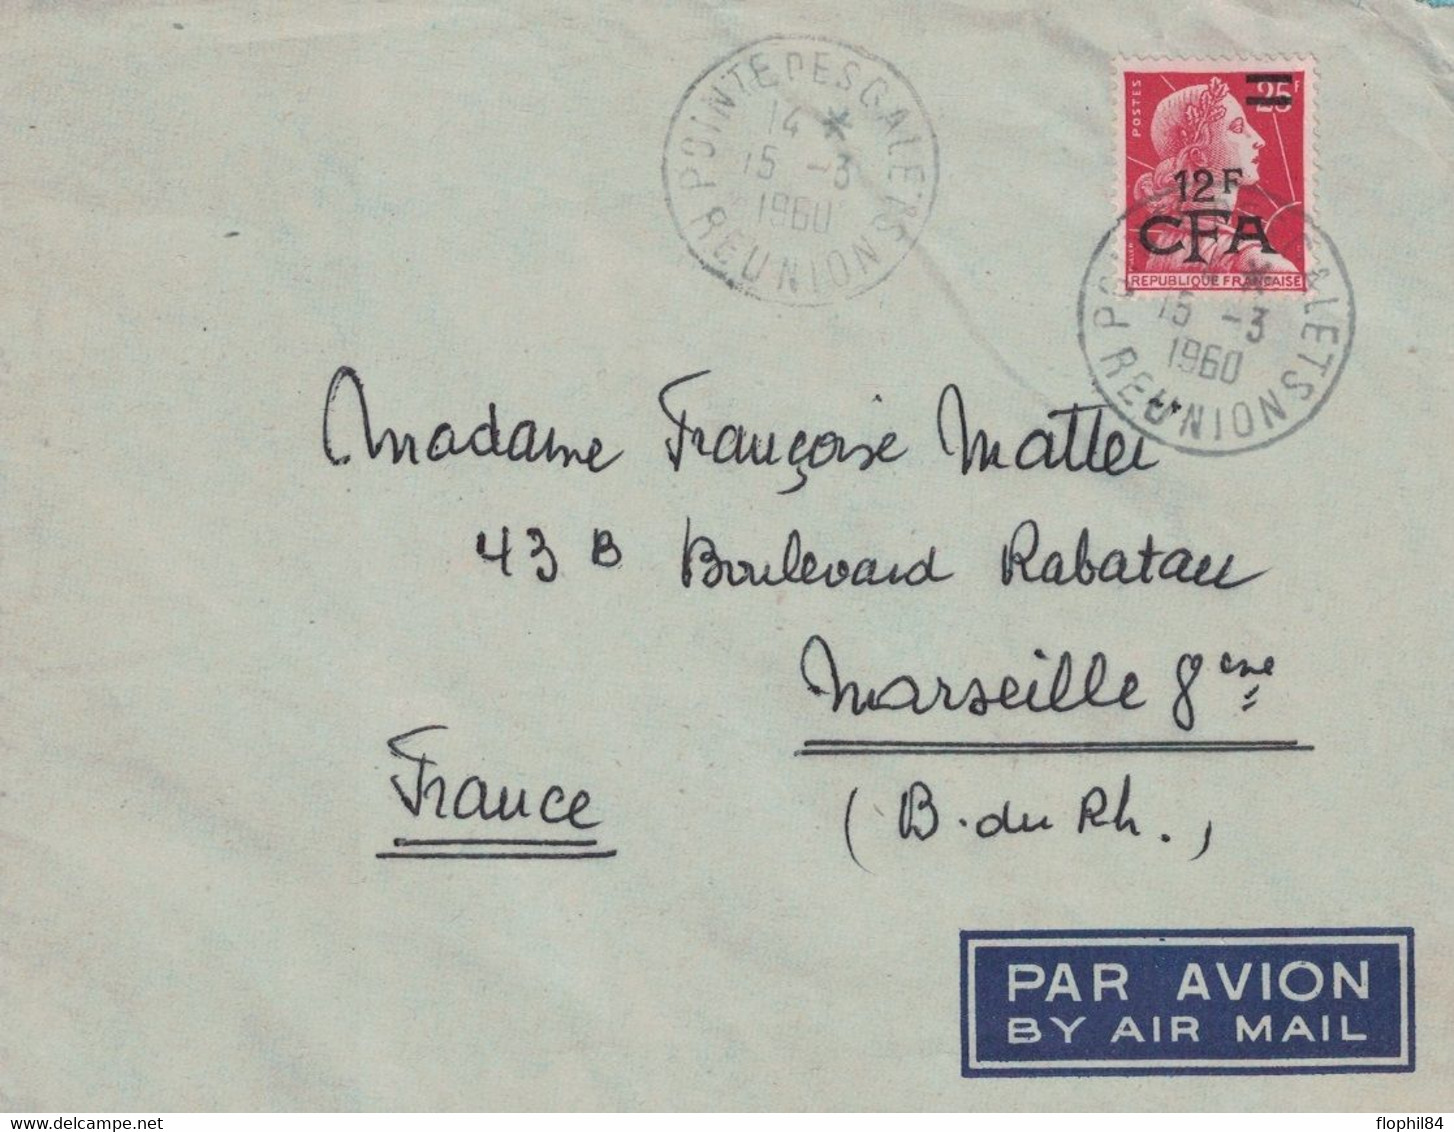 POINTE DES GALETS
14 *
15 -3
1960
REUNION
POSTES
25F
12F
CFA
MULLER
REPUBLIQUE FRANÇAISE
PO GALETS
15 -3
1960
REUNION
Madame Françoise Mattei
43 B Boulevard Rabatau
Marseille 8eme
France
(B. du Rh.)
PAR AVION
BY AIR MAIL
flophil84